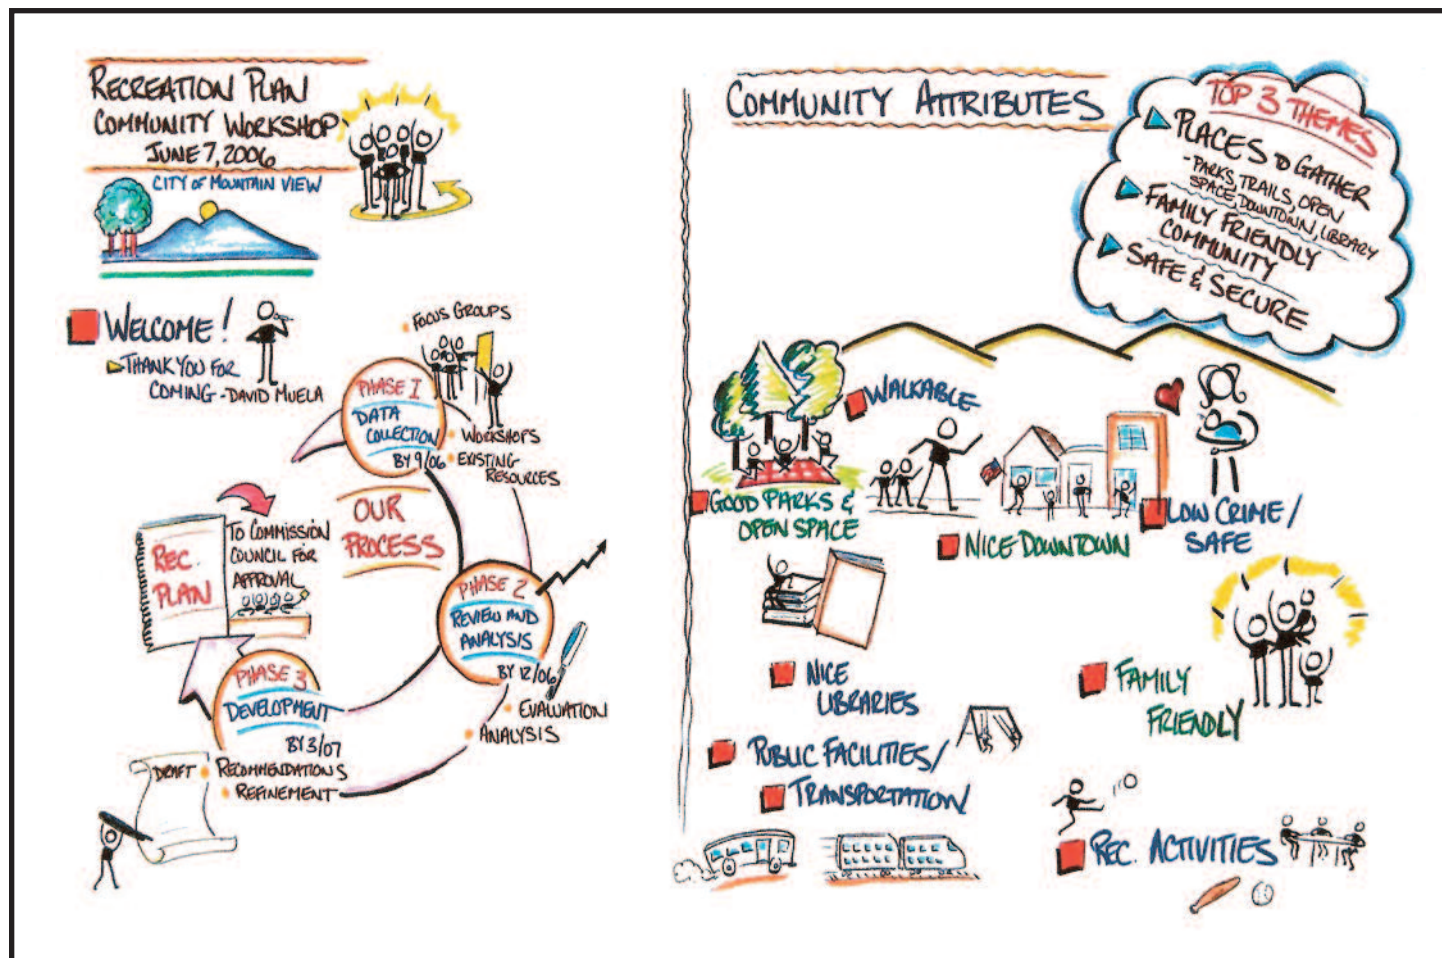 RECREATION PLAN
COMMUNITY WORKSHOP
JUNE 7, 2006
CITY OF MOUNTAIN VIEW
WELCOME!
THANK YOU FOR
COMING - DAVID MUELA
FOCUS GROUPS
PHASE I
DATA
COLLECTION
BY 9/06
WORKSHOPS
EXISTING
RESOURCES
OUR
PROCESS
REC.
PLAN
TO COMMISSION
COUNCIL FOR
APPROVAL
PHASE 2
REVIEW AND
ANALYSIS
BY 12/06
EVALUATION
ANALYSIS
PHASE 3
DEVELOPMENT
BY 3/07
DRAFT
RECOMMENDATIONS
REFINEMENT
COMMUNITY ATTRIBUTES
TOP 3 THEMES
PLACES TO GATHER
- PARKS, TRAILS, OPEN
SPACE, DOWNTOWN, LIBRARY
FAMILY FRIENDLY
COMMUNITY
SAFE & SECURE
WALKABLE
GOOD PARKS &
OPEN SPACE
NICE DOWNTOWN
LOW CRIME/
SAFE
NICE
LIBRARIES
FAMILY
FRIENDLY
PUBLIC FACILITIES/
TRANSPORTATION
REC. ACTIVITIES